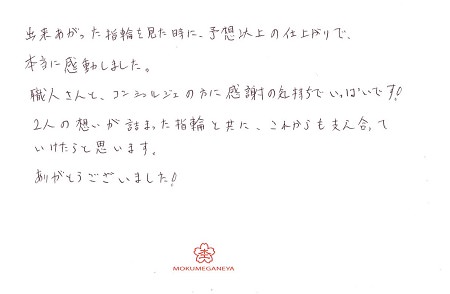 出来あがった指輪を見た時に、予想以上の仕上がりで、
本当に感動しました。
職人さんと、コンシェルジュの方に感謝の気持ちでいっぱいです!
2人の想いが詰まった指輪と共に、これからも支え合って
いけたらと思います。
ありがとうございました!
MOKUMEGANEYA